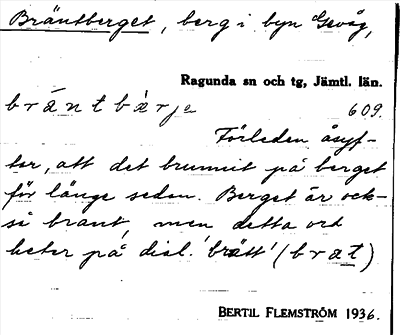 Bräntberget, berg i byn Gevåg,
Ragunda sn och tg, Jämtl. län.
bräntbärje 609.
Förleden åsyf-
tar, att det brunnit på berget
för länge sedan. Berget är ock-
så brant, men detta ord
heter på dial. 'brätt' (brat)
BERTIL FLEMSTRÖM 1936.